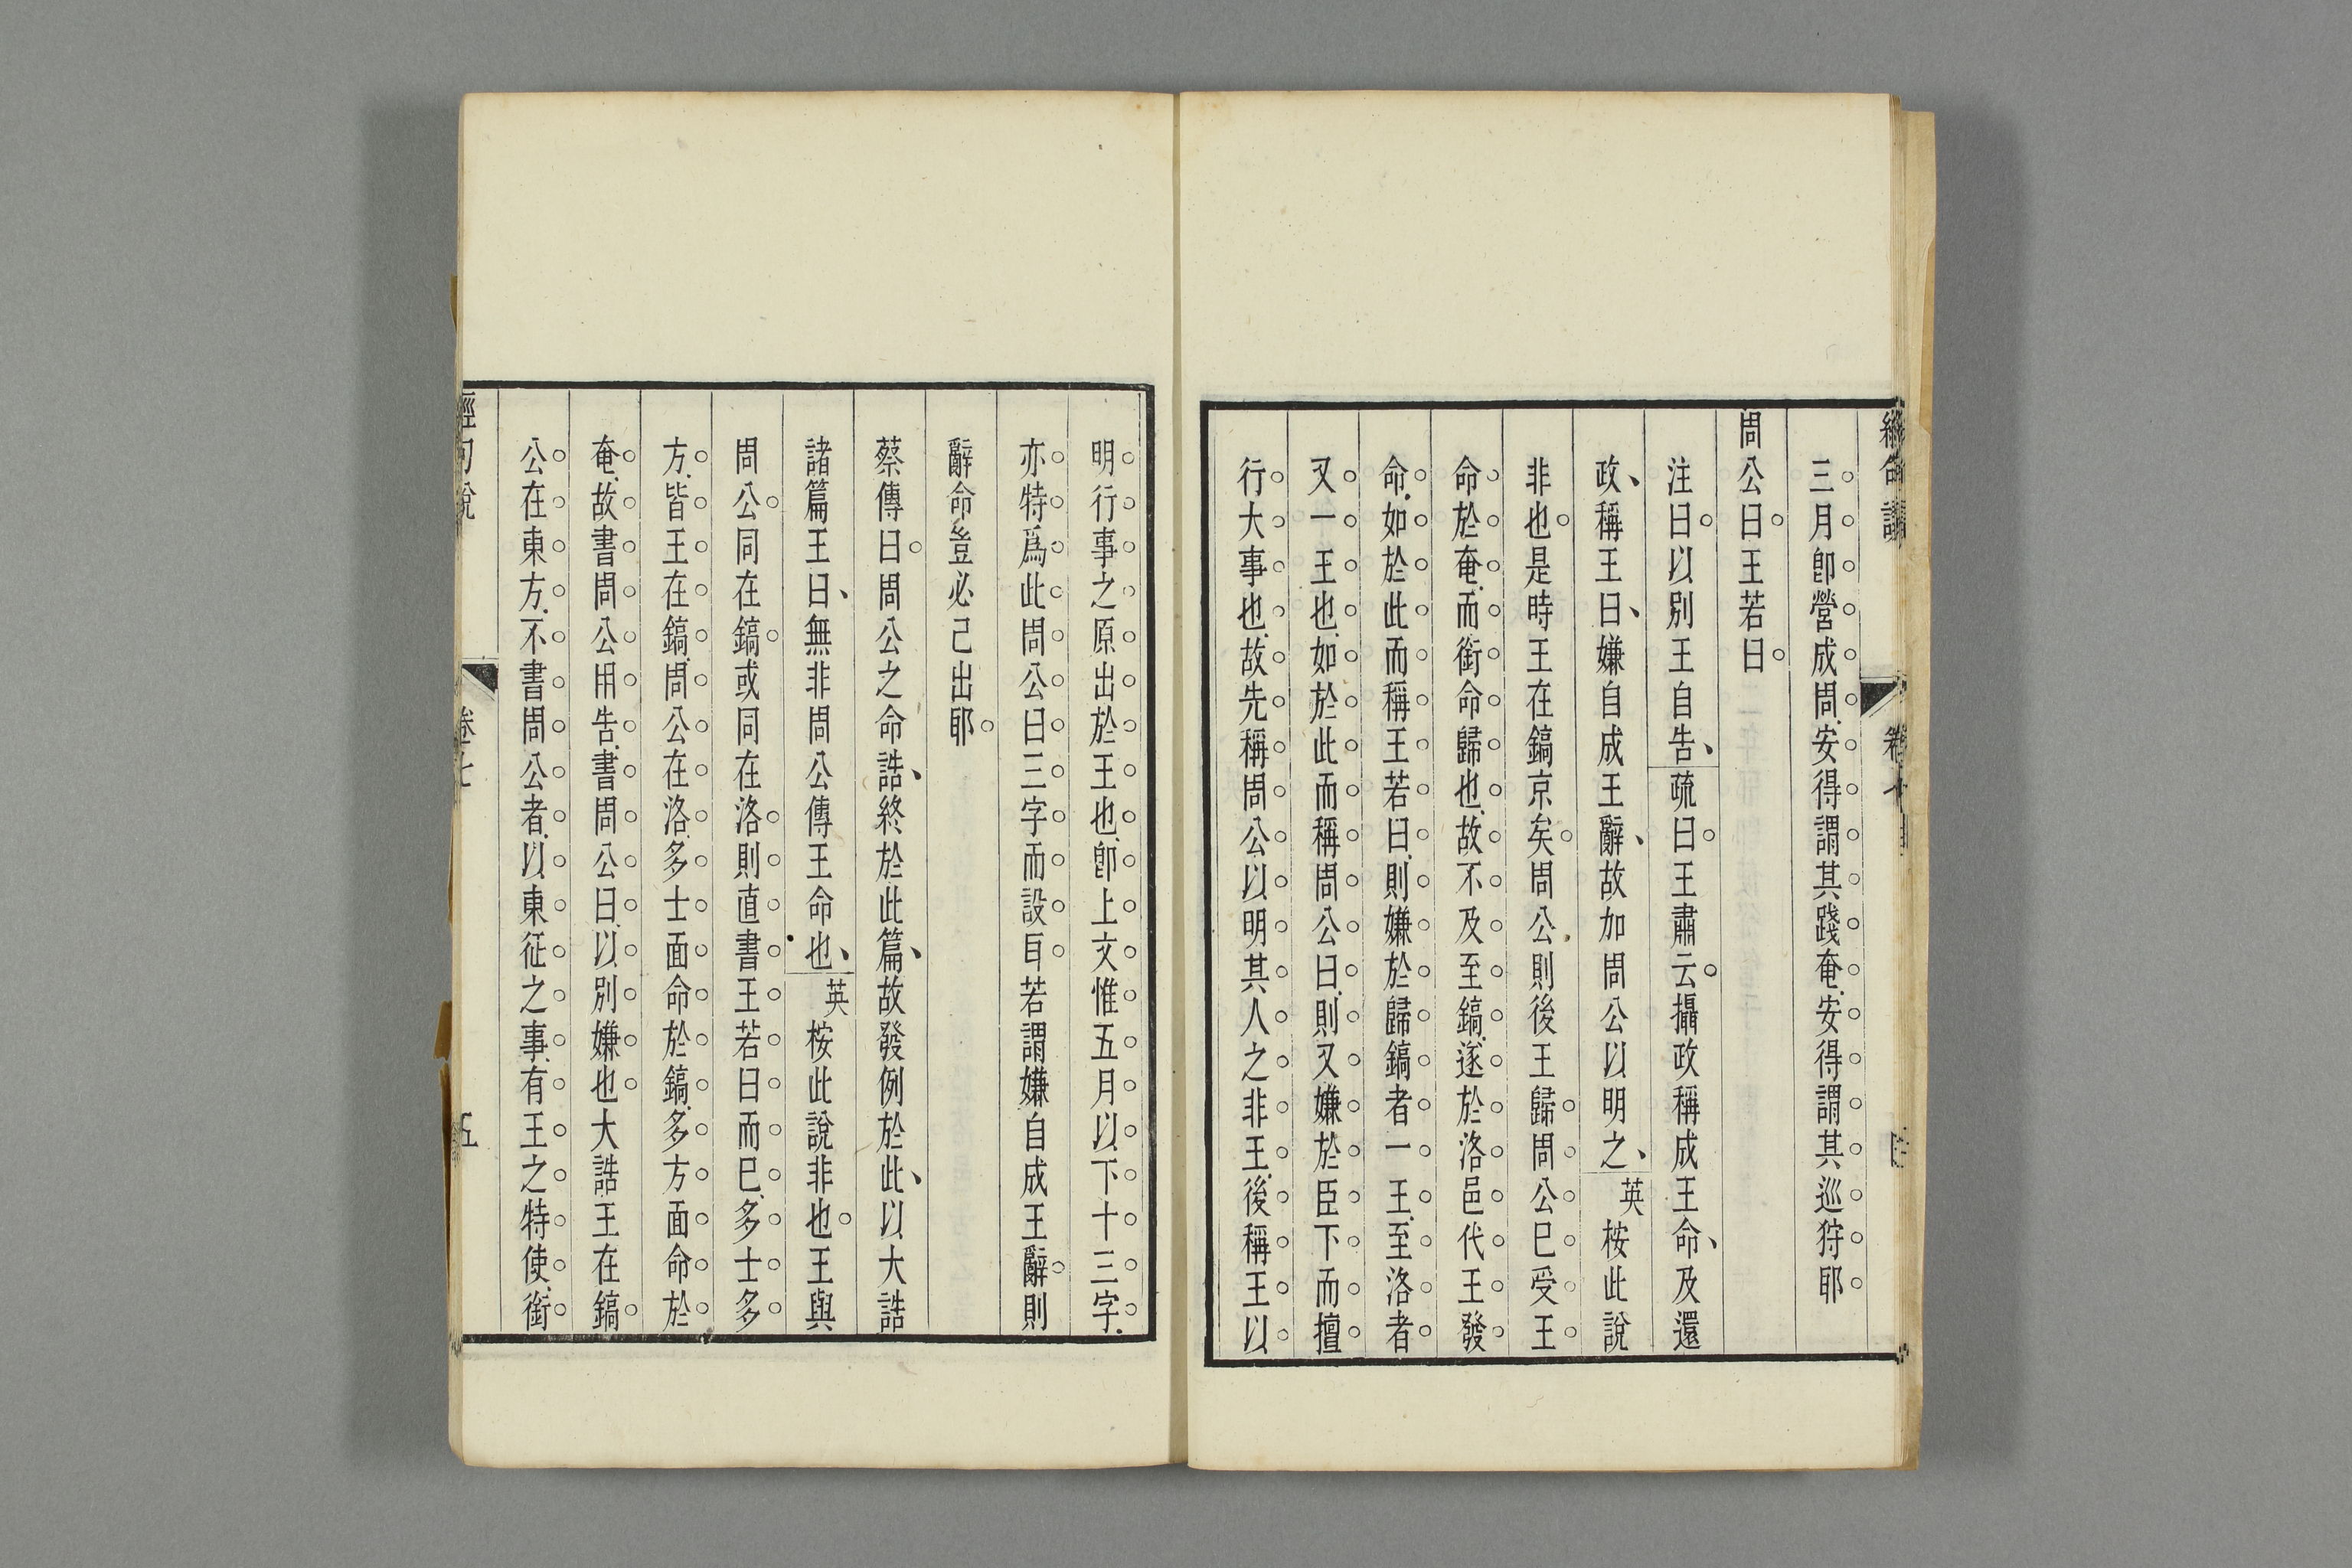 三月卽營成周安得謂其踐奄安得謂其巡狩耶
周公曰王若曰
注曰以別王自告疏曰王肅云攝政稱成王命及還
政稱王曰嫌自成王辭故加周公以明之英桉此說
非也是時王在鎬京矣周公則後王歸周公巳受王
命於奄而銜命歸也故不及至鎬遂於洛邑代王發
命如於此而稱王若曰則嫌於歸鎬者一王至洛者
又一王也如於此而稱周公曰則又嫌於臣下而擅
行大事也故先稱周公以明其人之非王後稱王以
明行事之原出於王也卽上文惟五月以下十三字
亦特爲此周公曰三字而設耳若謂嫌自成王辭則
辭命豈必己出耶
蔡傳曰周公之命誥終於此篇故發例於此以大誥
諸篇王曰無非周公傳王命也英桉此說非也王與
周公同在鎬或同在洛則直書王若曰而巳多士多
方皆王在鎬周公在洛多士面命於鎬多方面命於
奄故書周公用告書周公曰以別嫌也大誥王在鎬
公在東方不書周公者以東征之事有王之特使銜
經句說 卷七 五